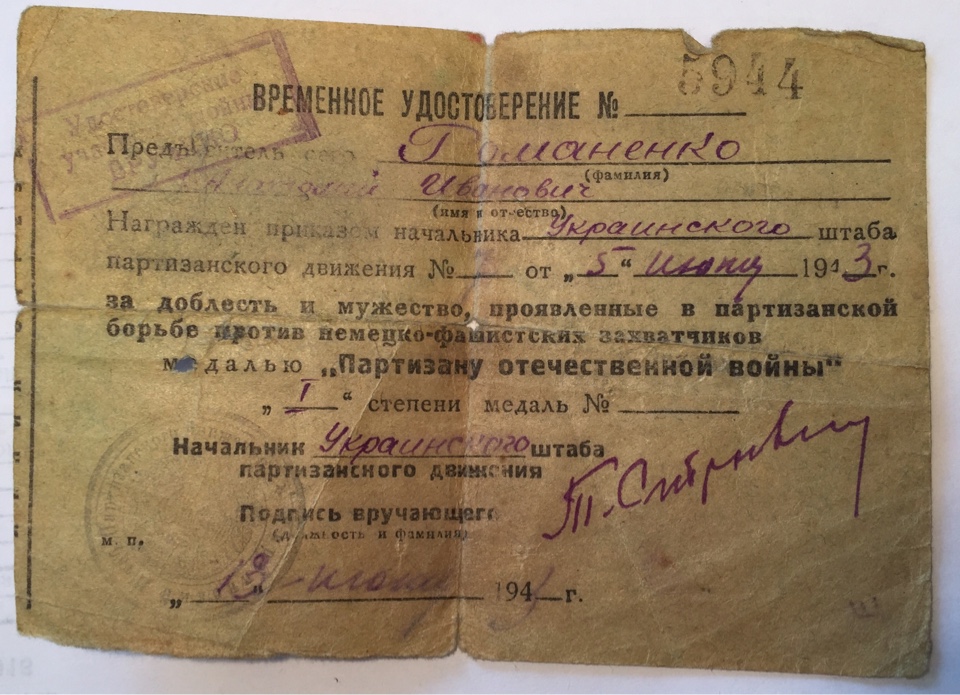 5944
ВРЕМЕННОЕ УДОСТОВЕРЕНИЕ №
Удостоверение
Предъявитель сего Романенко
(фамилия)
Иванович
(имя и отчество)
Награжден приказом начальника Украинского штаба
партизанского движения № от „5“ 1943 г.
за доблесть и мужество, проявленные в партизанской
борьбе против немецко-фашистских захватчиков
медалью „Партизану отечественной войны“
„I“ степени медаль №
Начальник Украинского штаба
партизанского движения
Подпись вручающего
(должность и фамилия)
м. п.
„13“ 194 г.